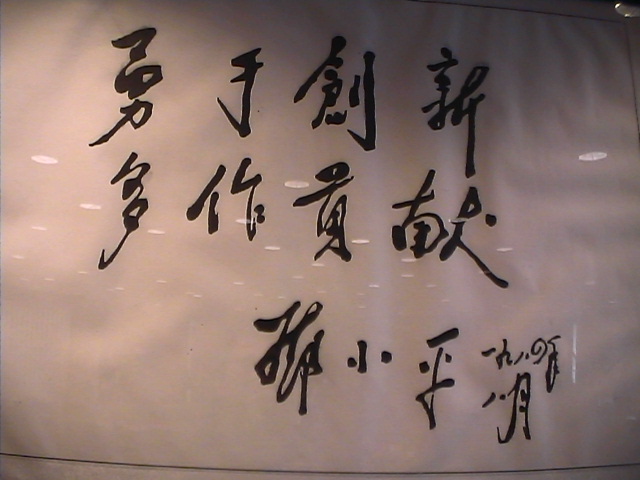 勇于創新
多作贡献
鄧小平
一九八四年
八月